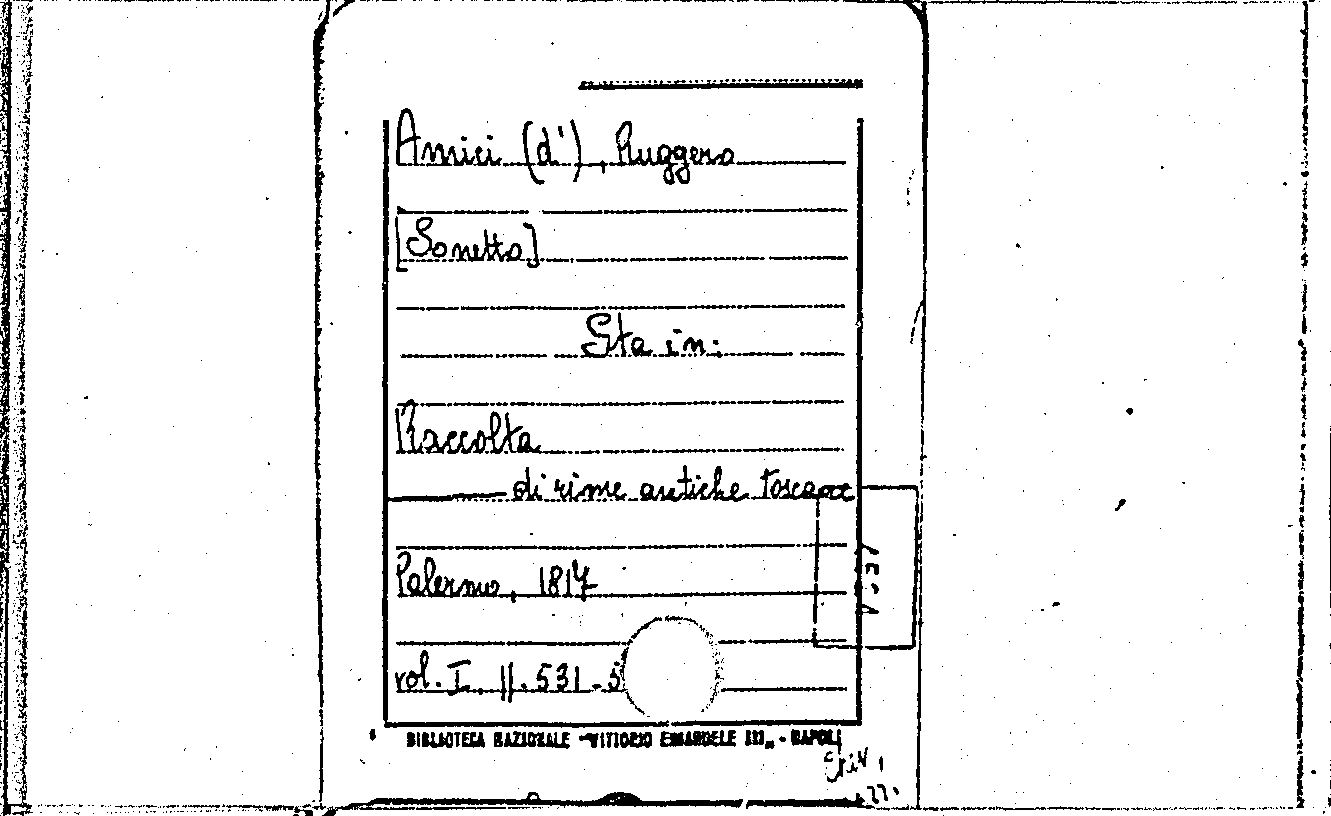 Amici (d'), Ruggero
[Sonetto]
Sta in:
Raccolta
di rime antiche toscane
Palermo, 1817
vol. I. pp. 531-5
BIBLIOTECA NAZIONALE "VITTORIO EMANUELE III" - NAPOLI